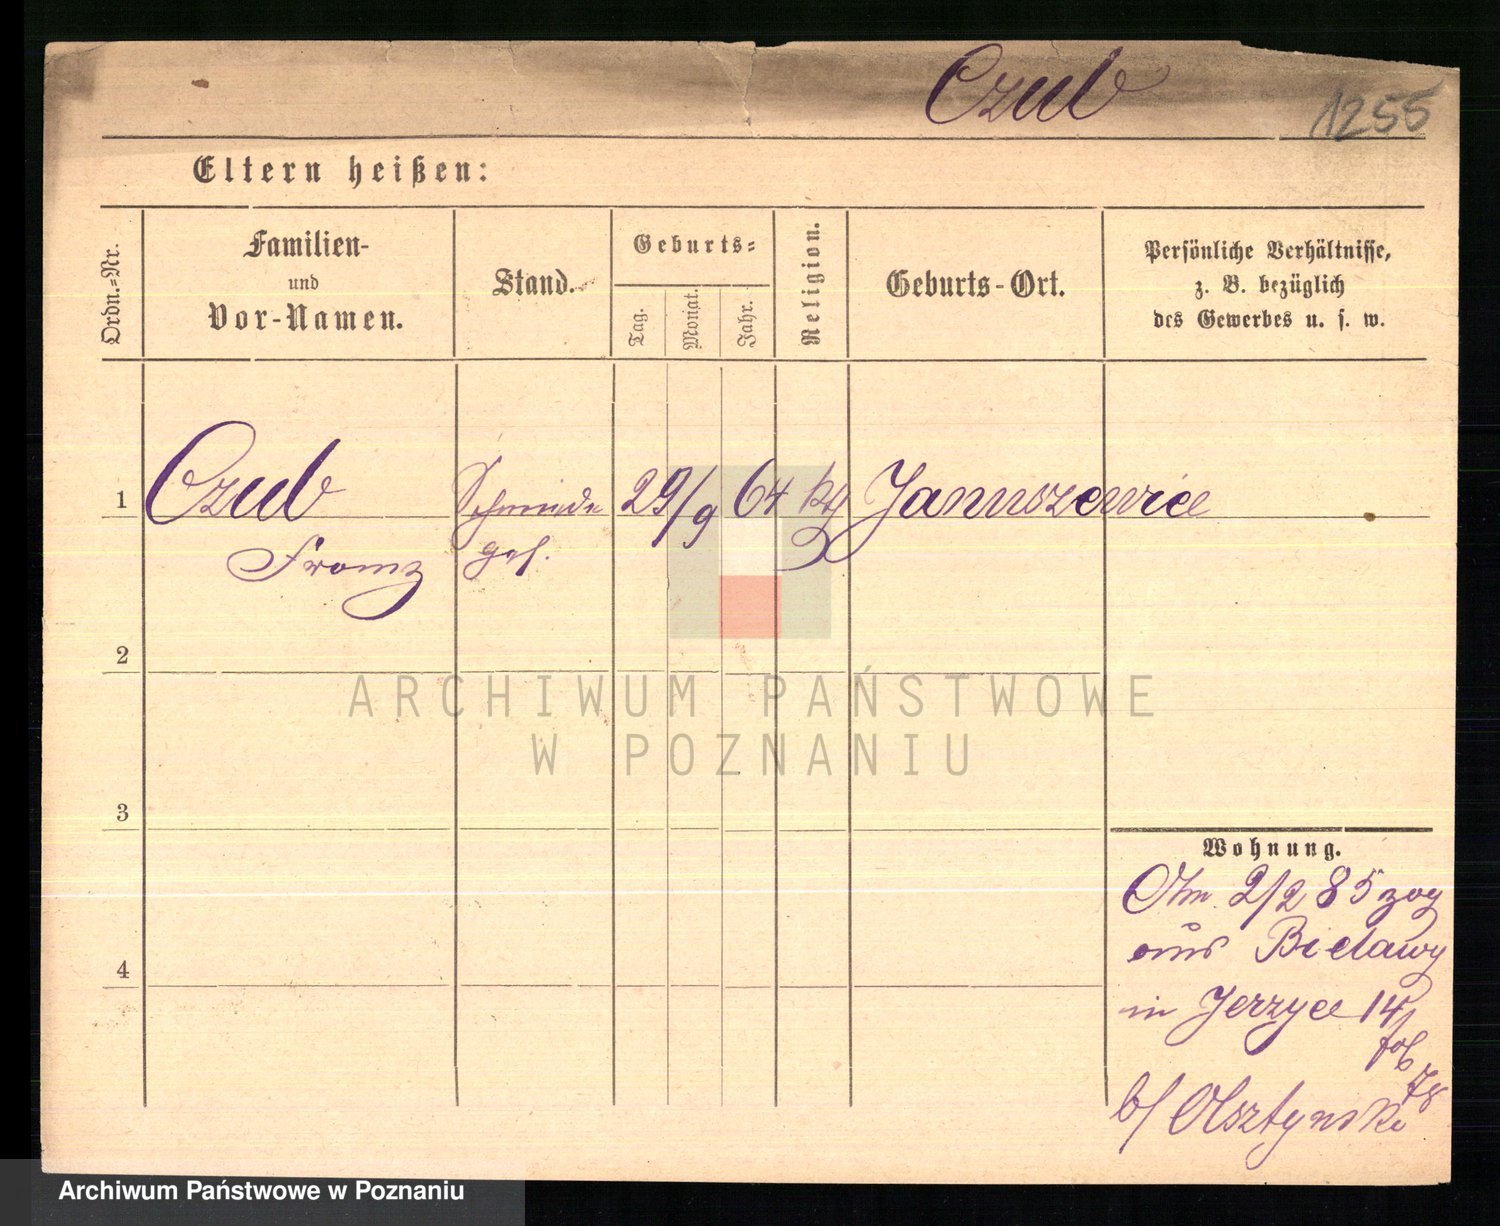 Czub
1255
Eltern heißen:
Ordn.-Nr.
Familien-
und
Vor-Namen.
Stand.
Geburts-
Tag.
Monat.
Jahr.
Religion.
Geburts-Ort.
Persönliche Verhältnisse,
z. B. bezüglich
des Gewerbes u. s. w.
1 Czub Schmiede 29/9 64 Januszewice
Franz ges.
2
3
4
Wohnung.
Am 2/2 85 zog
aus Bielawy
in Jerzyce 14/
fol 78
b/ Olsztynski
ARCHIWUM PAŃSTWOWE
W POZNANIU
Archiwum Państwowe w Poznaniu